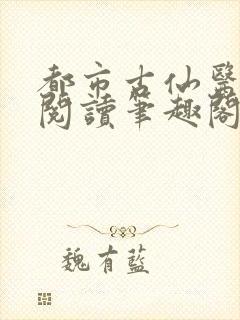 都市古仙醫
閱讀筆趣閣
魏有藍